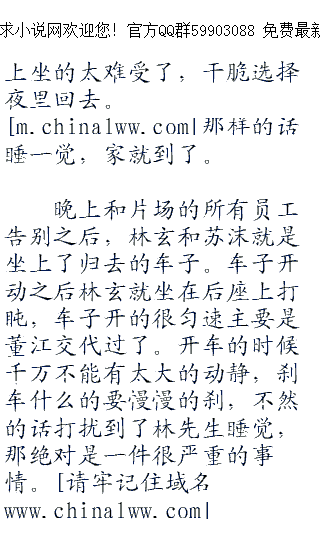 求小说网欢迎您！官方QQ群59903088 免费最新
上坐的太难受了，干脆选择
夜里回去。
[m.china1ww.com|那样的话
睡一觉，家就到了。
晚上和片场的所有员工
告别之后，林玄和苏沫就是
坐上了归去的车子。车子开
动之后林玄就坐在后座上打
盹，车子开的很匀速主要是
董江交代过了。开车的时候
千万不能有太大的动静，刹
车什么的要漫漫的刹，不然
的话打扰到了林先生睡觉，
那绝对是一件很严重的事
情。[请牢记住域名
www.china1ww.com|